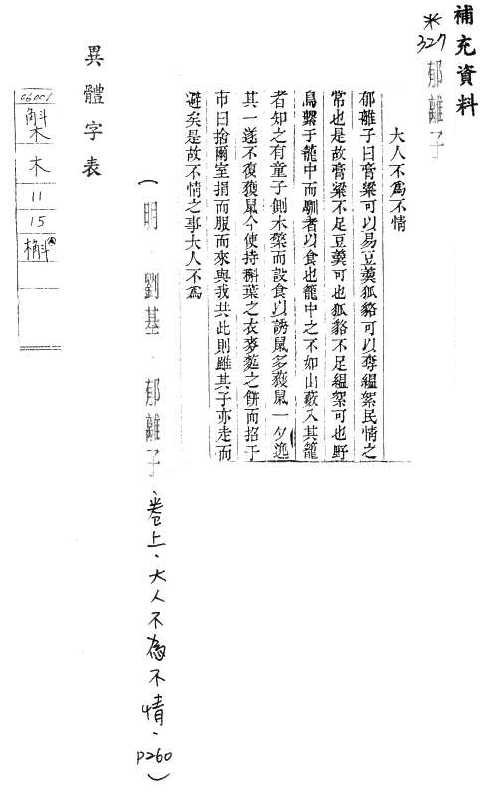 補充資料
※
327 郁離子
大人不為不情
郁離子曰膏粱可以易豆羹狐貉可以奪縕絮民情之
常也是故膏粱不足豆羹可也狐貉不足縕絮可也野
鳥嬰于籠中而馴者以食也籠中之不如山藪入其籠
者知之有童子側木槃而設食以誘鼠多獲鼠一夕逸
其一遂不復獲鼠今使持槲葉之衣麥麧之餅而招于
市曰捨爾室捐而服而來與我共此則雖其子亦走而
避矣是故不情之事大人不為
(明 劉基 郁離子、卷上、大人不為不情、p260)
異體字表
木
11
15